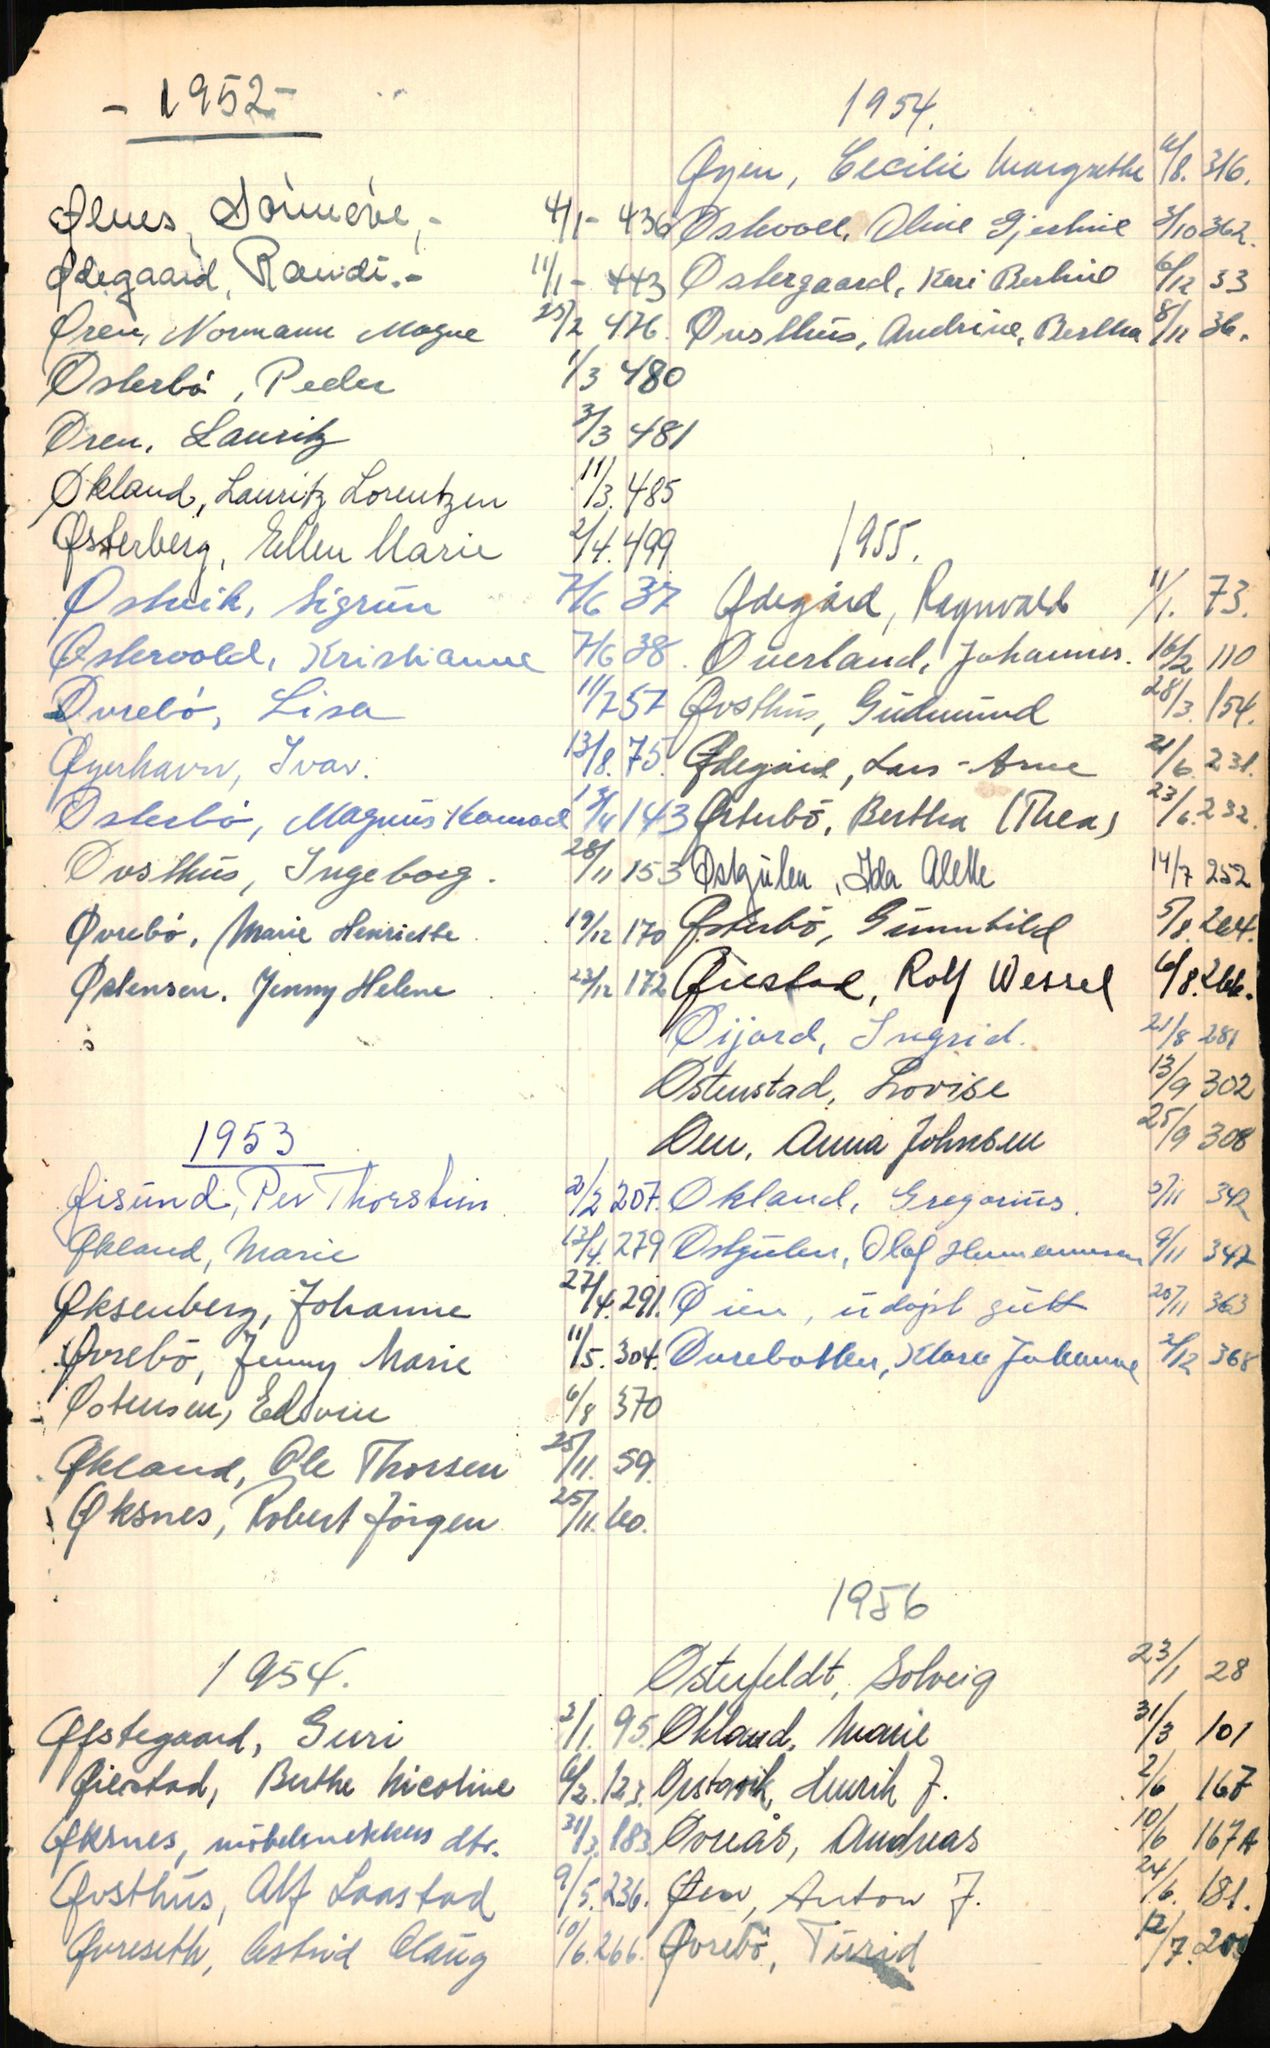 - 1952 -
Ølnes, Sönneve, - 4/1 - 436
Ødegaard, Randi. - 11/1 - 443
Øren, Normann Magne 25/2 476.
Østerbö, Peder 1/3 480
Øren, Lauritz 3/3 481
Økland, Lauritz Lorentzen 11/3. 485
Østerberg, Ellen Marie 2/4. 499
Østvik, Sigrun 7/6 37
Østervold, Kristianne 7/6 38.
Øvrebö, Lisa 11/7 57
Øyerhavn, Ivar. 13/8. 75.
Østebö, Magnus Konrad 143
Øvsthus, Ingeborg. 28/11 153
Øvrebö, Marie Henriette 19/12 170
Østensen, Jenny Helene 23/12 172
1953
Øisund, Per Thorstein 20/2 207.
Økland, Marie 13/4. 279
Øksenberg, Johanne 27/4. 291.
Øvrebö, Jenny Marie 11/5. 304.
Østensen, Edvin 6/8 370
Økland, Ole Thorsen 25/11. 59.
Øksnes, Robert Jörgen 25/11. 60.
1954.
Øfstegaard, Guri 2/1. 95.
Øiestad, Berthe Nicoline 6/2. 123.
Øksnes, möbelsnekkers dtr. 31/3. 183.
Øvsthus, Alf Laastad 9/5. 236.
Øvreseth, Astrid Olaug 10/6. 266.
1954.
Øyen, Cecilie Margrethe 6/8. 316.
Østvoll, Oline Gjertine 3/10 362.
Østergaard, Kari Bertine 6/12 33
Øvsthus, Andrine, Bertha 8/12 36.
1955.
Ødegård, Ragnvald 11/1. 73.
Øverland, Johannes. 16/2 110
Øvsthus, Gudmund 28/3. 154.
Ødegård, Lars-Arne 21/6. 231.
Østerbö, Bertha (Thea) 23/6. 232.
Østgulen, Ida Alette 14/7 252
Østerbö, Gunnhild 5/8. 264.
Øiestad, Rolf Wessel 6/8. 266.
Øijord, Ingrid. 21/8 281
Østenstad, Lovise 13/9 302
Øen, Anna Johnsen 25/9 308
Økland, Gregorius. 5/11 342
Østgulen, Olaf Hermannsen 9/11 347
Øien, udöpt gutt 20/11 363
Øvrebotten, Klara Johanne 2/12 368
1956
Østerfeldt, Solveig 23/1 28
Økland, Marie 31/3 101
Ørstavik, Henrik J. 2/6 167
Øvreås, Andreas 10/6 167A
Øen, Anton J. 24/6. 181.
Øvrebö, Turid 12/7.